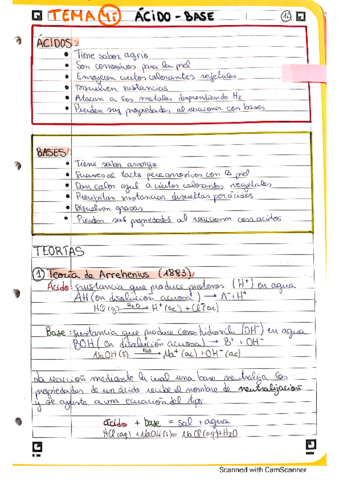 TEMA 4: ÁCIDO - BASE
ÁCIDOS
• Tiene sabor agrio
• Son corrosivos para la piel
• Enrojecen ciertos colorantes vegetales
• Disuelven sustancias
• Atacan a los metales desprendiendo H2
• Pierden sus propiedades al reaccionar con bases
BASES
• Tiene sabor amargo
• Suaves al tacto pero corrosivos con la piel
• Dan color azul a ciertos colorantes vegetales
• Precipitan sustancias disueltas por ácidos
• Disuelven grasas
• Pierden sus propiedades al reaccionar con ácidos
TEORÍAS
1) Teoría de Arrehenius (1883)
Ácido: sustancia que produce protones (H+) en agua
AH (en disolución acuosa) → A- + H+
HCl(g) H2O→ H+ (ac) + Cl- (ac)
Base: sustancia que produce iones hidroxilo (OH-) en agua
BOH (en disolución acuosa) → B+ + OH-
NaOH(s) H2O→ Na+ (ac) + OH- (ac)
La reacción mediante la cual una base neutraliza las
propiedades de un ácido recibe el nombre de neutralización
y se ajusta a una ecuación del tipo:
ácido + base = sal + agua
HCl(aq) + NaOH(s) = NaCl(aq) + H2O
Scanned with CamScanner